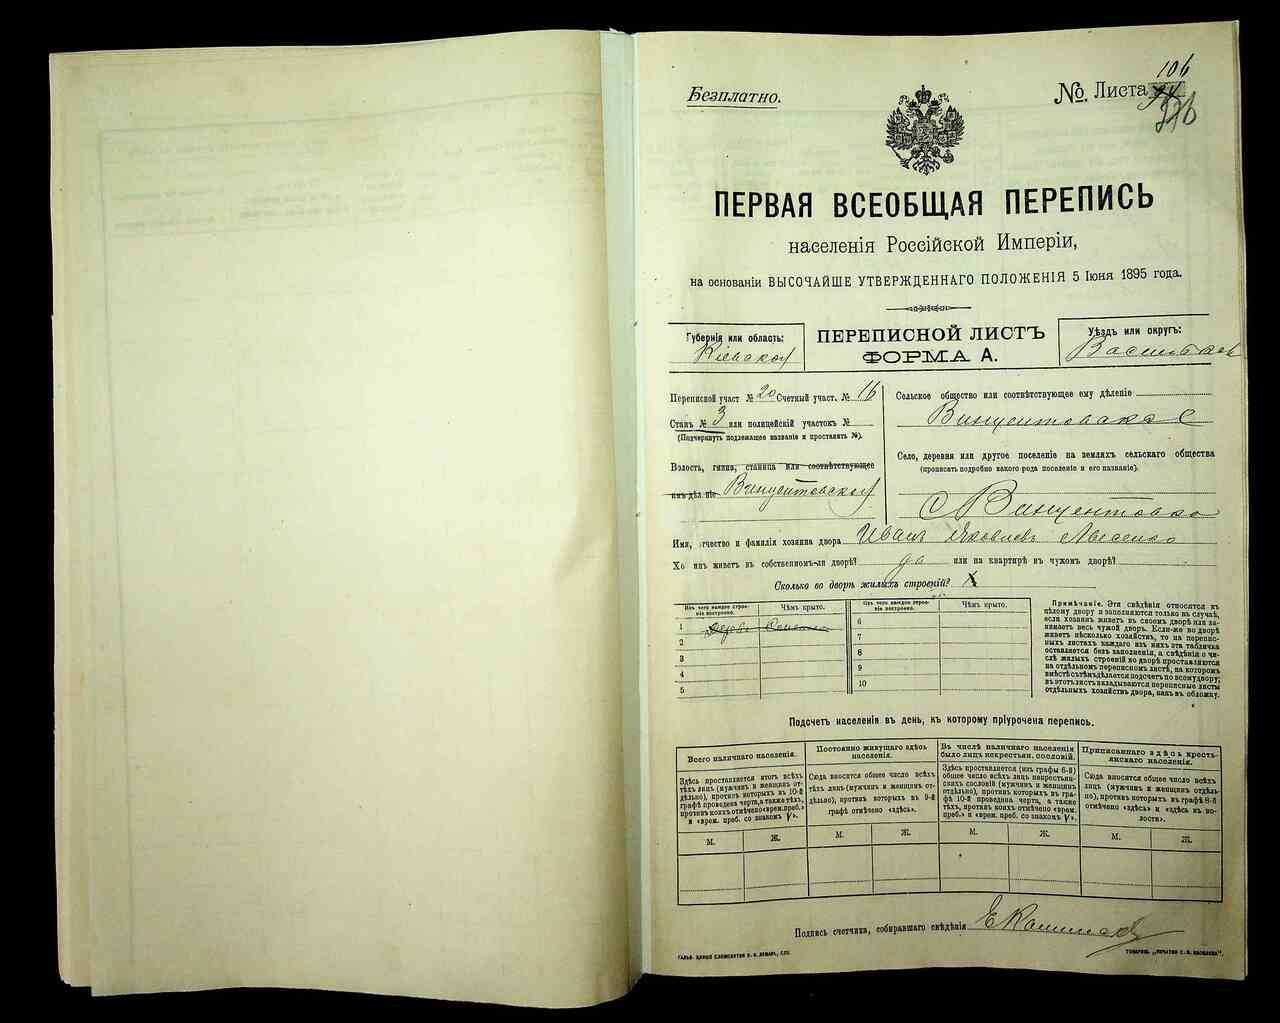 Безплатно.
№. Листа 106
ПЕРВАЯ ВСЕОБЩАЯ ПЕРЕПИСЬ
населенія Россійской Имперіи,
на основаніи ВЫСОЧАЙШЕ УТВЕРЖДЕННАГО ПОЛОЖЕНІЯ 5 Іюня 1895 года.
Губернія или область:
Кіевская
ПЕРЕПИСНОЙ ЛИСТЪ
ФОРМА А.
Уѣздъ или округъ:
Переписной участ № 20 Счетный участ. № 16
Станъ № 3 или полицейскій участокъ №
(Подчеркнуть подлежащее названіе и проставить №).
Волость, гмина, станица или соотвѣтствующее
имъ дѣленіе Винцентовская
Сельское общество или соотвѣтствующее ему дѣленіе
Винцентовское
Село, деревня или другое поселеніе на земляхъ сельскаго общества
(прописать подробно какого рода поселеніе и его названіе).
с Винцентовка
Имя, отчество и фамилія хозяина двора Иванъ Яковлевъ
живетъ въ собственномъ-ли дворѣ? да или на квартирѣ въ чужомъ дворѣ?
Сколько во дворѣ жилыхъ строеній? X
Изъ чего каждое строеніе построено.
Чѣмъ крыто.
Изъ чего каждое строеніе построено.
Чѣмъ крыто.
1
2
3
4
5
6
7
8
9
10
Примѣчаніе. Эти свѣдѣнія относятся къ
цѣлому двору и заполняются только въ случаѣ,
если хозяинъ живетъ въ своемъ дворѣ или занимаетъ
весь чужой дворъ. Если-же во дворѣ
живетъ нѣсколько хозяйствъ, то на переписныхъ
листахъ каждаго изъ нихъ эта табличка
оставляется безъ заполненія, а свѣдѣнія о числѣ
жилыхъ строеній во дворѣ проставляются
на отдѣльномъ переписномъ листѣ, на которомъ
вмѣстѣ съ тѣмъ дѣлается подсчетъ по всему двору;
въ этотъ листъ вкладываются переписные листы
отдѣльныхъ хозяйствъ двора, какъ въ обложку.
Подсчетъ населенія въ день, къ которому пріурочена перепись.
Всего наличнаго населенія.
Здѣсь проставляется итогъ всѣхъ
тѣхъ лицъ (мужчинъ и женщинъ отдѣльно),
противъ которыхъ въ 10-й
графѣ проведена черта, а также тѣхъ,
противъ коихъ отмѣчено «врем. преб.»
и «врем. преб. со знакомъ V».
М.
Ж.
Постоянно живущаго здѣсь
населенія.
Сюда вносится общее число всѣхъ
тѣхъ лицъ (мужчинъ и женщинъ отдѣльно),
противъ которыхъ въ 9-й
графѣ отмѣчено «здѣсь».
М.
Ж.
Въ числѣ наличнаго населенія
было лицъ некрестьян. сословій.
Здѣсь проставляется (изъ графы 6-й)
общее число всѣхъ лицъ некрестьянскихъ
сословій (мужчинъ и женщинъ
отдѣльно), противъ которыхъ въ графѣ
10-й проведена черта, а также
тѣхъ, противъ коихъ отмѣчено «врем.
преб.» и «врем. преб. со знакомъ V».
М.
Ж.
Приписаннаго здѣсь крестьянскаго
населенія.
Сюда вносится общее число всѣхъ
лицъ (мужчинъ и женщинъ отдѣльно),
противъ которыхъ въ графѣ 8-й
отмѣчено «здѣсь» и «здѣсь въ волости».
М.
Ж.
Подпись счетчика, собиравшаго свѣдѣнія